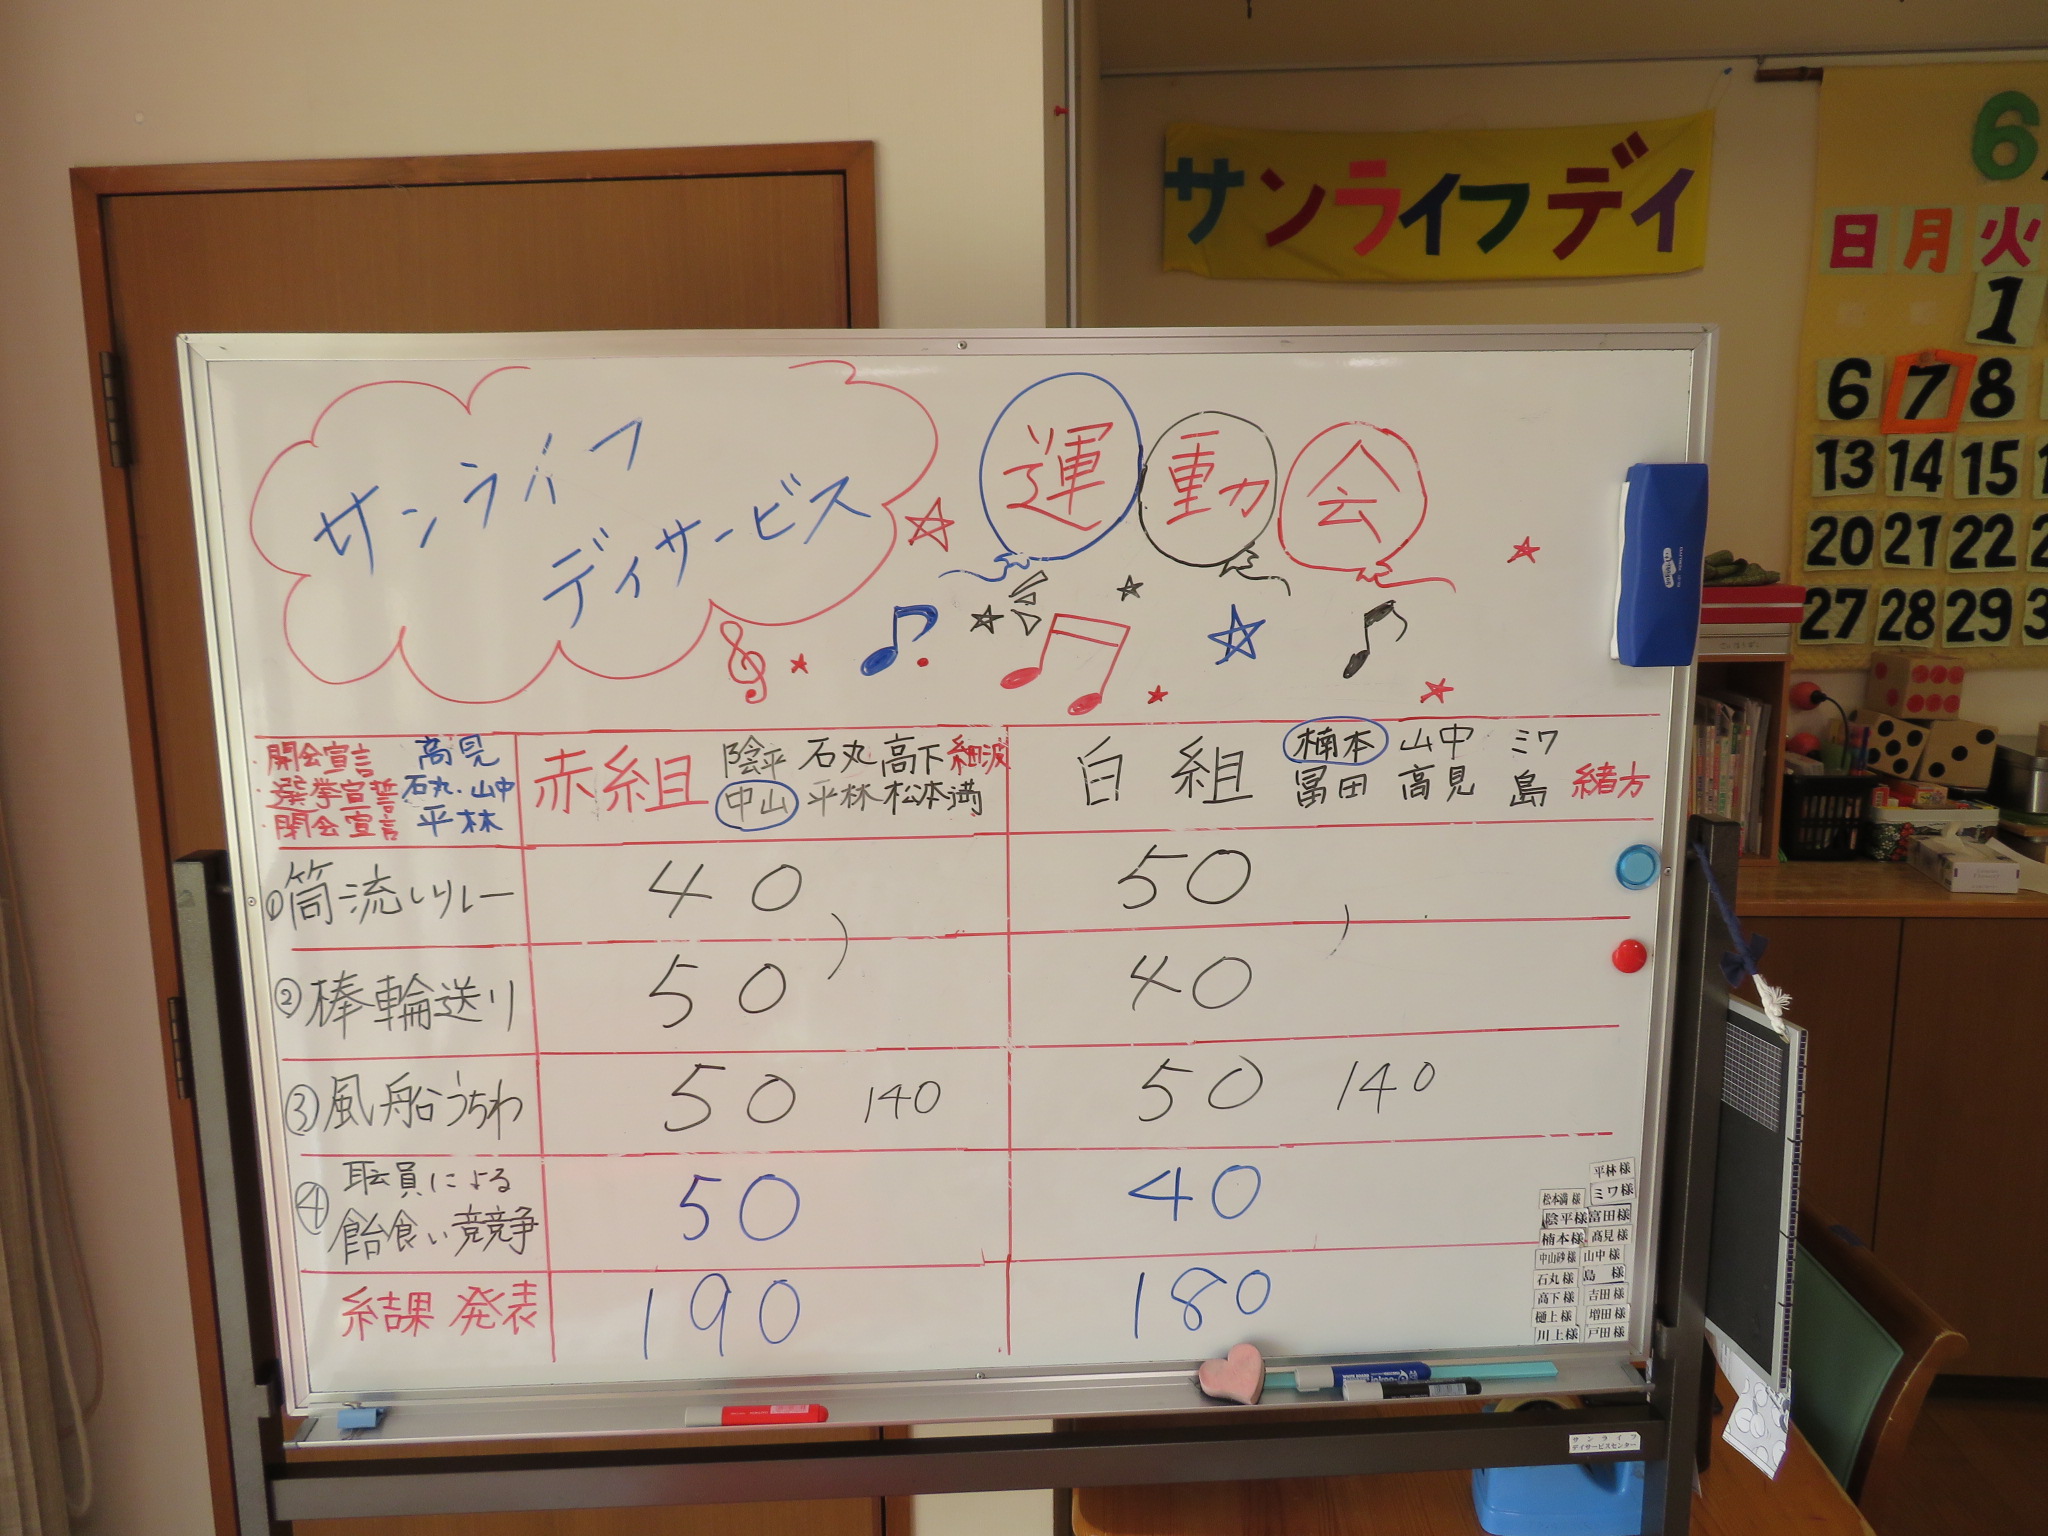 サンライフデイ
6
日 月 火
1
6 7 8
13 14 15
20 21 22
27 28 29
サンライフ
デイサービス
運動会
・開会宣言 高見
・選挙宣誓 石丸・山中
・閉会宣言 平林
赤組 陰平 石丸 高下 細波
中山 平林 松本満
白組 楠本 山中 ミワ
冨田 高見 島 緒方
①筒流しリレー 40 50
②棒輪送り 50 40
③風船うちわ 50 140 50 140
④職員による
飴食い競争 50 40
結果発表 190 180
平林様
松本満様 ミワ様
陰平様 富田様
楠本様 高見様
中山砂様 山中様
石丸様 島 様
高下様 吉田様
樋上様 増田様
川上様 戸田様
サンライフ
デイサービスセンター